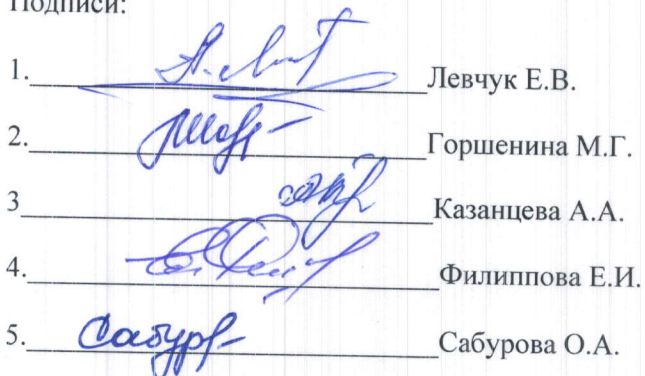 Подписи:
1. Левчук Е.В.
2. Горшенина М.Г.
3 Казанцева А.А.
4. Филиппова Е.И.
5. Сабур Сабурова О.А.